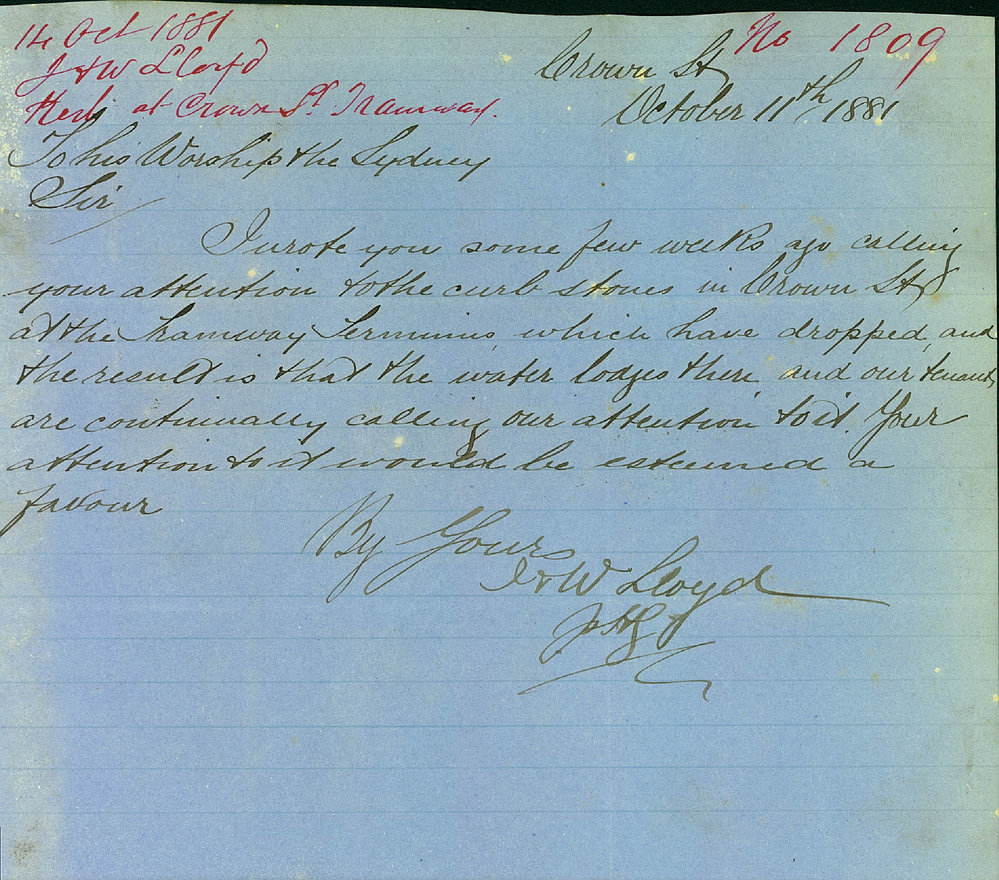 14 Oct 1881
J & W Lloyd
Kerb at Crown St. Tramway.
No 1809
Crown St
October 11th 1881
To his Worship the Sydney
Sir
I wrote you some few weeks ago calling
your attention to the curb stones in Crown St
at the Tramway Terminus, which have dropped, and
the result is that the water lodges there and our tenants
are continually calling our attention to it. Your
attention to it would be esteemed a
favour
Yours
J & W Lloyd